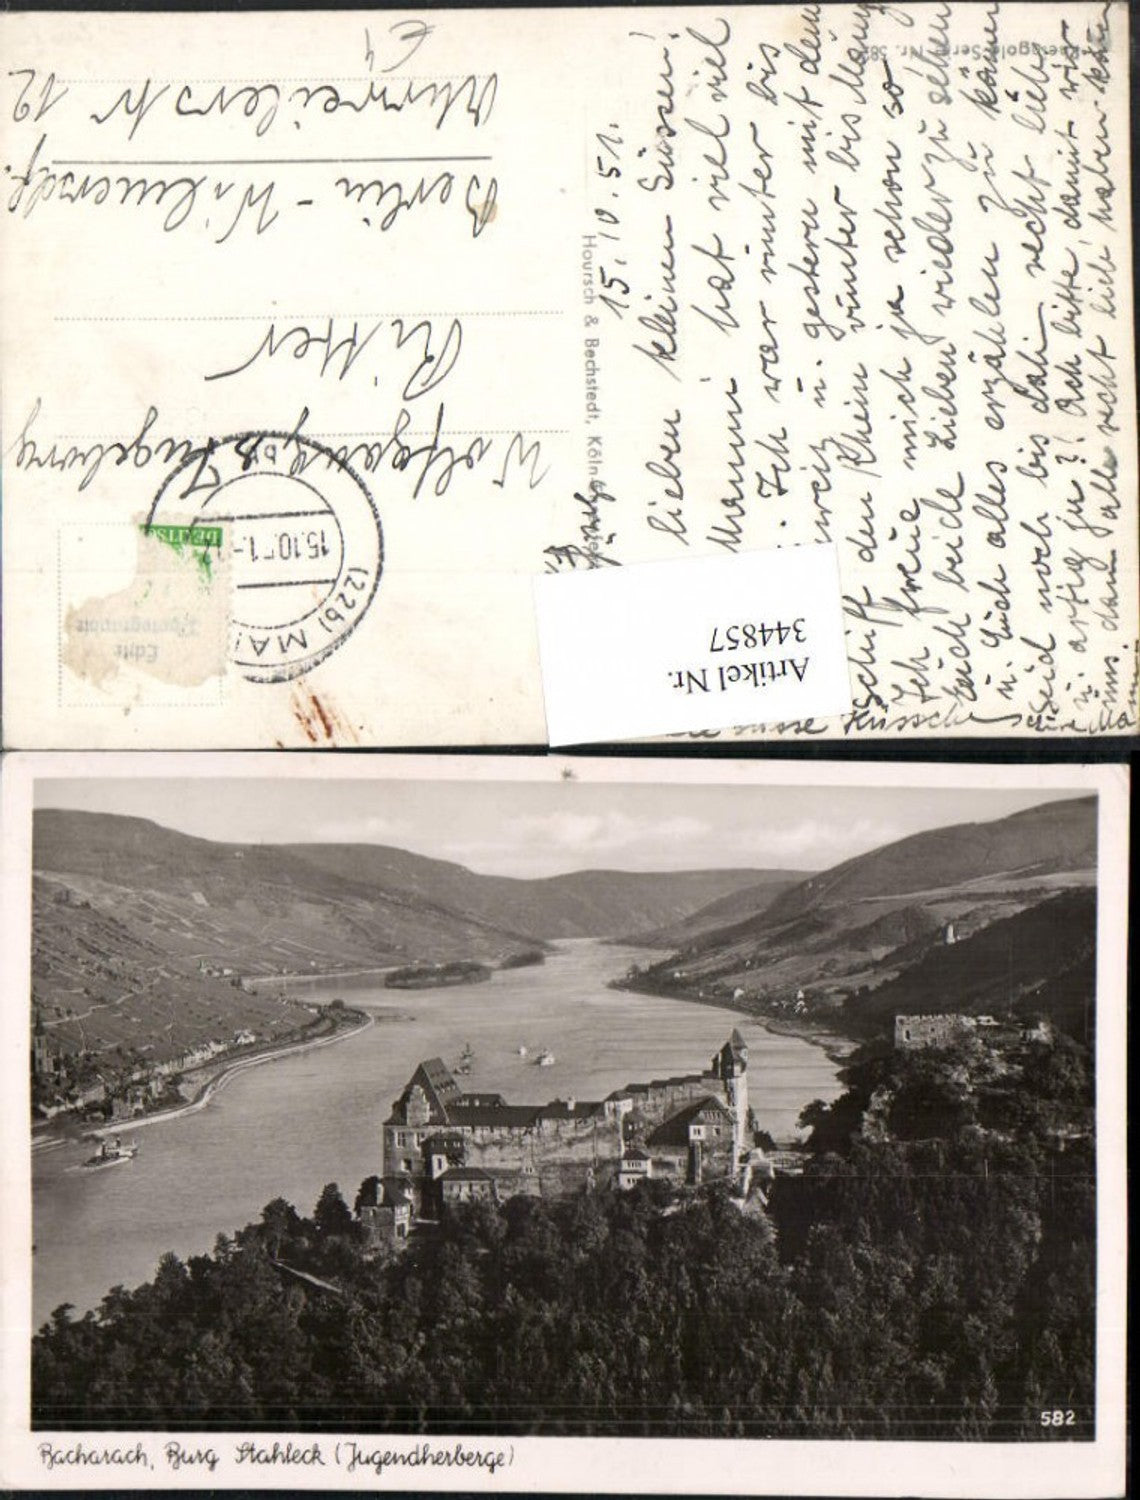 Rheingold-Serie Nr. 582
15. 10. 51.
lieben kleinen Süssen!
Mammi hat viel viel
. Ich war runter bis
weit u. gestern mit dem
Schiff den Rhein runter bis Mainz
Ich freue mich ja schon so
Euch beide Lieben wiederzusehen
u. Euch alles erzählen zu können
Seid noch bis dahin recht lieb
u. artig ja? Ach bitte, damit wir
uns dann alle recht lieb haben können
süsse Küsschen Eure Mammi
Hoursch & Bechstedt, Köln
Wolfgang & Ingeborg
Ritter
Berlin-Wilmersdf.
Ahrweilerstr 12
€4
DEUTSCHE
15.10.51.
(22b) MA
Echte
Photographie
Artikel Nr.
344857
582
Bacharach, Burg Stahleck (Jugendherberge)